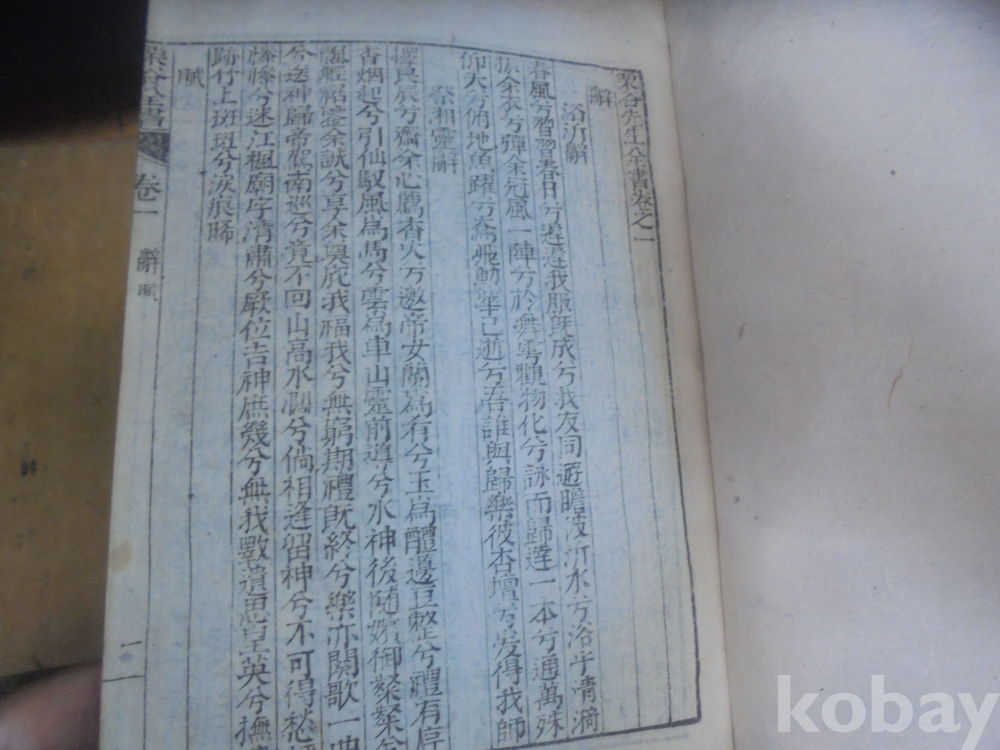 栗谷先生全書卷之一
辭
浴沂辭
春風兮習習春日兮遲遲我服旣成兮我友同遊瞻彼沂水兮浴乎淸漪
振余衣兮彈余冠風一陣兮於舞雩觀物化兮詠而歸達一本兮通萬殊
仰天兮俯地魚躍兮鳶飛勛華已逝兮吾誰與歸樂彼杏壇兮爰得我師
祭湘靈辭
擇良辰兮齋余心薦香火兮邀帝女蘭爲肴兮玉爲醴邊豆整兮禮有序
香烟起兮引仙馭風爲馬兮雲爲車山靈前導兮水神後隨嬪御粲粲兮
兮享余與庇我福我兮無窮期禮旣終兮樂亦闋歌一曲
兮送神歸帝駕南巡兮竟不回山高水濶兮倘相逢留神兮不可得愁
兮迷江楓廟宇淸肅兮厥位吉神庶幾兮無我斁遺思皇英兮撫
跡竹上斑斑兮淚痕晞
賦
栗谷全書
卷一
辭 賦
一
kobay